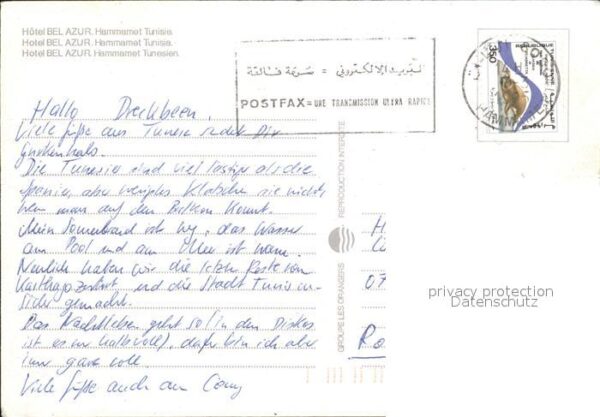 Hôtel BEL AZUR. Hammamet Tunisie
Hotel BEL AZUR. Hammamet Tunisia.
Hotel BEL AZUR. Hammamet Tunesien.
البريد الإلكتروني = سرعة فائقة
POSTFAX = UNE TRANSMISSION ULTRA RAPIDE
350
Hallo
Viele Grüße aus Tunesien sendet Dir
Die Tunesier sind viel lustiger als die
Spanier, aber wenigstens klatschen sie nicht
wenn man auf den Balkon kommt.
Mein Sonnenbrand ist weg, das Wasser
am Pool und am Meer ist warm.
Neulich haben wir die letzten Reste von
und die Stadt Tunis
gemacht.
Das Nachtleben geht so (in den Diskos
ist es nur halbvoll), dafür bin ich aber
immer ganz voll.
Viele Grüße auch an Conny
REPRODUCTION INTERDITE
GROUPE LES ORANGERS
07
Ro
privacy protection
Datenschutz